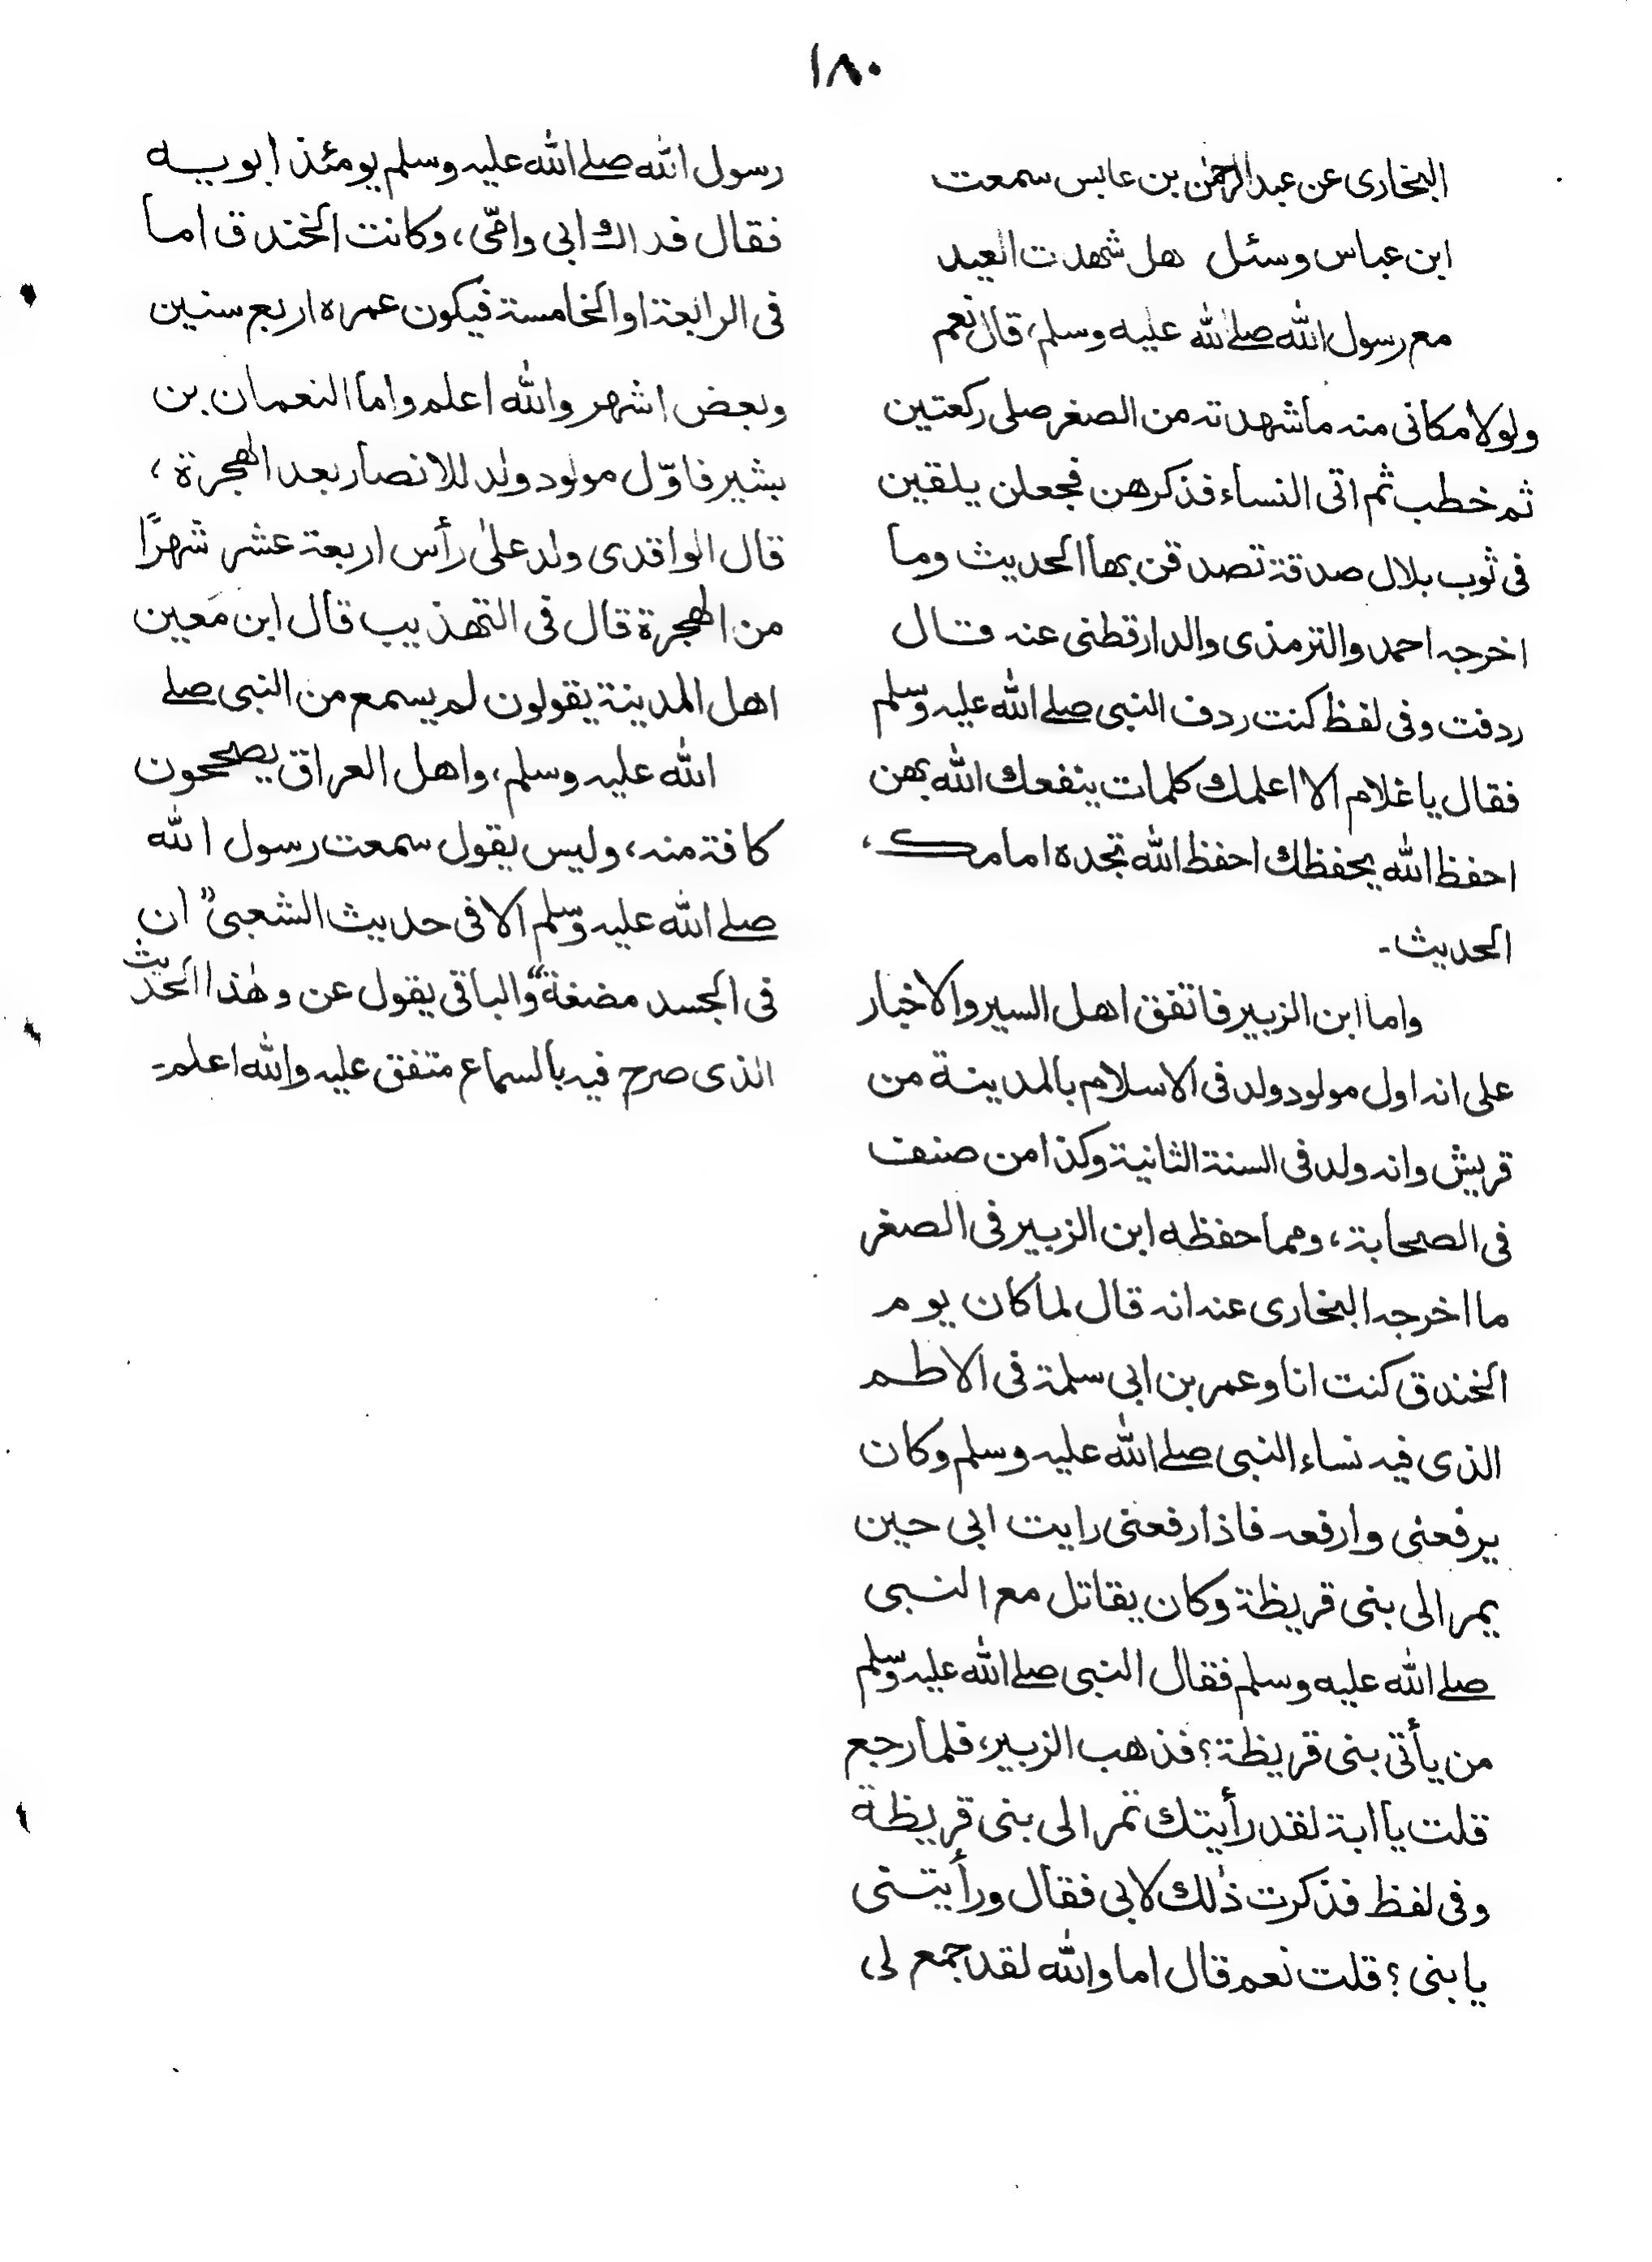 ١٨٠
البخاری عن عبدالرحمٰن بن عابس سمعت
ابن عباس وسئل هل شهدت العید
مع رسول الله صلے الله علیه وسلم، قال نعم
ولولا مکانی منه ما شهدته من الصغر صلی رکعتین
ثم خطب ثم اتی النساء فذکرهن فجعلن یلقین
فی ثوب بلال صدقة تصدقن بها الحدیث وما
اخرجه احمد والترمذی والدارقطنی عنه قال
ردفت وفی لفظ کنت ردف النبی صلے الله علیه وسلم
فقال یا غلام الا اعلمك کلمات ینفعك الله بهن
احفظ الله یحفظك احفظ الله تجده امامک،
الحدیث۔
واما ابن الزبیر فاتفق اهل السیر والاخبار
علی انه اول مولود ولد فی الاسلام بالمدینة من
قریش وانه ولد فی السنة الثانیة وکذا من صنف
فی الصحابة، ومما حفظه ابن الزبیر فی الصغر
ما اخرجه البخاری عنه انه قال لما کان یوم
الخندق کنت انا وعمر بن ابی سلمة فی الاطم
الذی فیه نساء النبی صلے الله علیه وسلم وکان
یرفعنی وارفعه فاذا رفعنی رایت ابی حین
یمر الی بنی قریظة وکان یقاتل مع النبی
صلے الله علیه وسلم فقال النبی صلے الله علیه وسلم
من یأتی بنی قریظة؟ فذهب الزبیر، فلما رجع
قلت یا ابة لقد رأیتك تمر الی بنی قریظة
وفی لفظ فذکرت ذٰلك لابی فقال ورأیتنی
یا بنی؟ قلت نعم قال اما والله لقد جمع لی
رسول الله صلے الله علیه وسلم یومئذ ابویه
فقال فداك ابی وامّی، وکانت الخندق اما
فی الرابعة او الخامسة فیکون عمره اربع سنین
وبعض اشهر والله اعلم واما النعمان بن
بشیر فاوّل مولود ولد للانصار بعد الهجرة،
قال الواقدی ولد علیٰ رأس اربعة عشر شهرًا
من الهجرة قال فی التهذیب قال ابن مَعین
اهل المدینة یقولون لم یسمع من النبی صلے
الله علیه وسلم، واهل العراق یصححون
کافة منه، ولیس یقول سمعت رسول الله
صلے الله علیه وسلم الا فی حدیث الشعبی" ان
فی الجسد مضغة" والباقی یقول عن وهٰذا الحدیث
الذی صرح فیه بالسماع متفق علیه والله اعلم۔